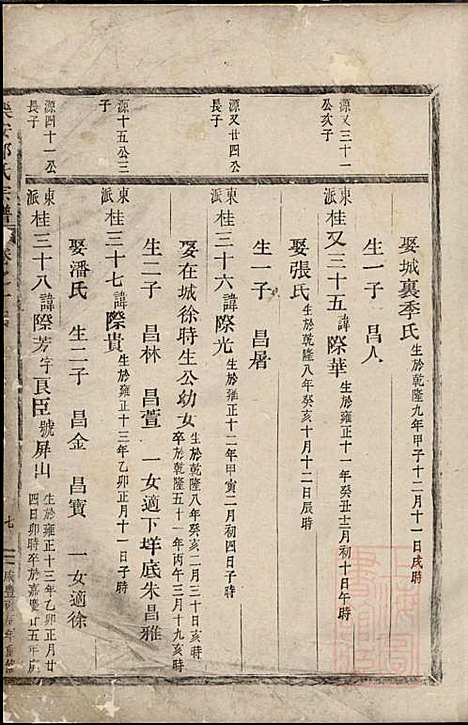 娶城裏季氏 生於乾隆九年甲子十二月十一日戌時
生一子 昌人
源又三十一公次子
東派 桂又三十五諱際華 生於雍正十一年癸丑十二月初十日午時
娶張氏 生於乾隆八年癸亥十月十二日辰時
生一子 昌暑
源又廿四公長子
東派 桂三十六諱際光 生於雍正十二年甲寅二月初四日子時
娶在城徐時生公幼女 生於乾隆八年癸亥二月三十日亥時 卒於乾隆五十一年丙午三月十九亥時
生二子 昌林 昌萱 一女適下垟底朱昌雅
源十五公三子
東派 桂三十七諱際貴 生於雍正十三年乙卯正月十一日子時
娶潘氏 生二子 昌金 昌寶 一女適徐
源四十一公長子
東派 桂三十八諱際芳字良臣號屏山 生於雍正十三年乙卯正月廿四日卯時卒於嘉慶廿五年
氏宗譜
七